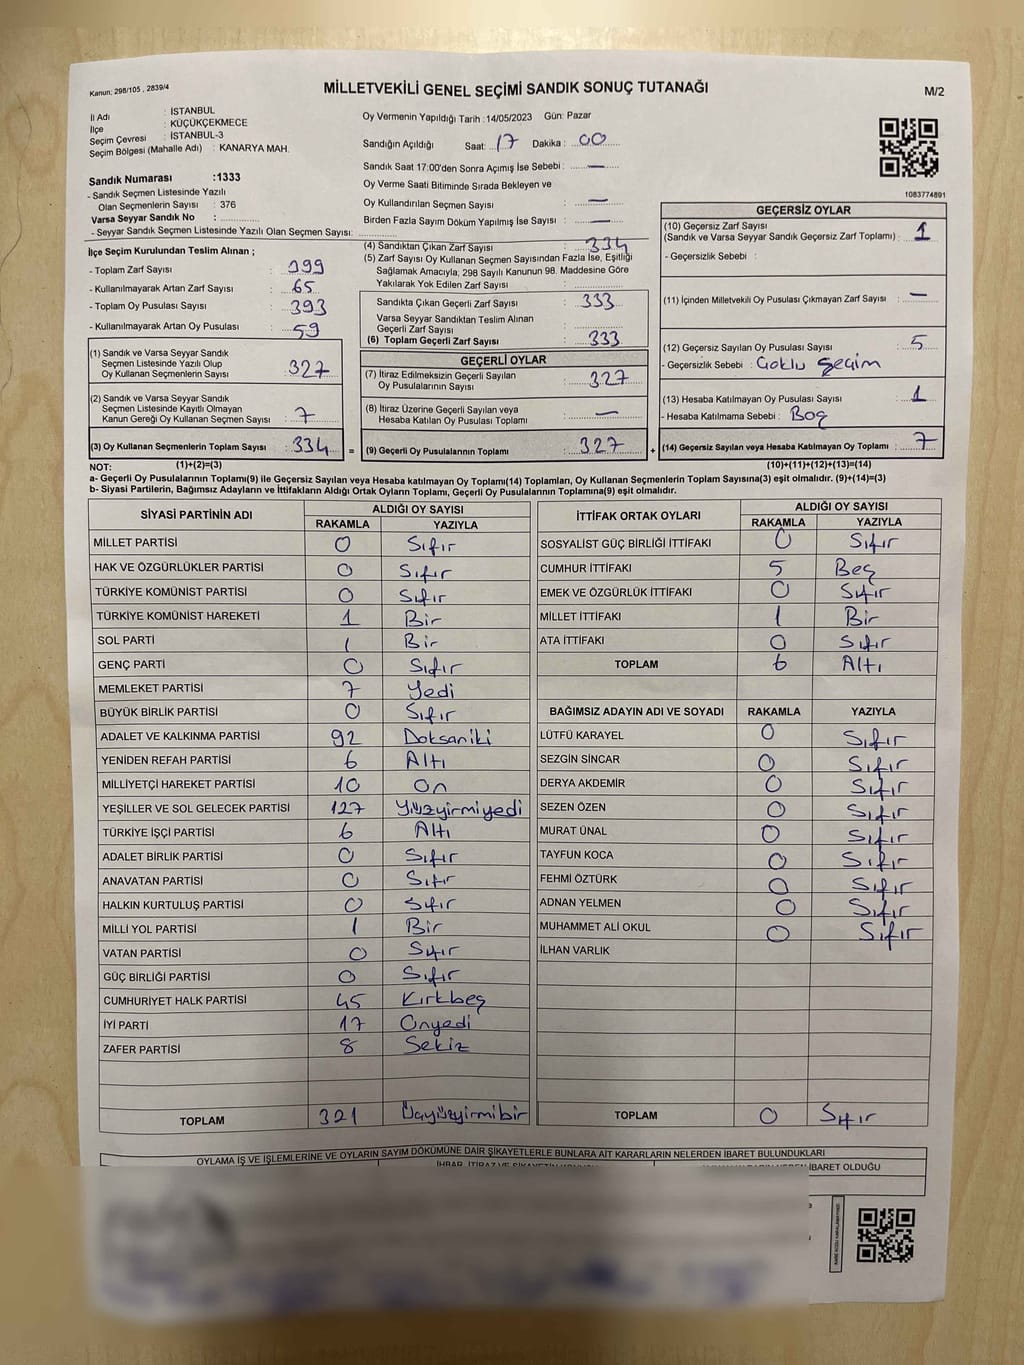 Kanun: 298/105 , 2839/4
MİLLETVEKİLİ GENEL SEÇİMİ SANDIK SONUÇ TUTANAĞI
M/2
İl Adı : İSTANBUL
İlçe : KÜÇÜKÇEKMECE
Seçim Çevresi : İSTANBUL-3
Seçim Bölgesi (Mahalle Adı) : KANARYA MAH.
Sandık Numarası :1333
- Sandık Seçmen Listesinde Yazılı
Olan Seçmenlerin Sayısı : 376
Varsa Seyyar Sandık No :
- Seyyar Sandık Seçmen Listesinde Yazılı Olan Seçmen Sayısı:
Oy Vermenin Yapıldığı Tarih :14/05/2023 Gün: Pazar
Sandığın Açıldığı Saat: 17 Dakika : 00
Sandık Saat 17:00'den Sonra Açımış İse Sebebi : —
Oy Verme Saati Bitiminde Sırada Bekleyen ve
Oy Kullandırılan Seçmen Sayısı : —
Birden Fazla Sayım Döküm Yapılmış İse Sayısı : —
1083774891
İlçe Seçim Kurulundan Teslim Alınan ;
- Toplam Zarf Sayısı : 399
- Kullanılmayarak Artan Zarf Sayısı : 65
- Toplam Oy Pusulası Sayısı : 393
- Kullanılmayarak Artan Oy Pusulası : 59
(1) Sandık ve Varsa Seyyar Sandık
Seçmen Listesinde Yazılı Olup
Oy Kullanan Seçmenlerin Sayısı : 327
(2) Sandık ve Varsa Seyyar Sandık
Seçmen Listesinde Kayıtlı Olmayan
Kanun Gereği Oy Kullanan Seçmen Sayısı : 7
(3) Oy Kullanan Seçmenlerin Toplam Sayısı : 334 =
(4) Sandıktan Çıkan Zarf Sayısı : 334
(5) Zarf Sayısı Oy Kullanan Seçmen Sayısından Fazla İse, Eşitliği
Sağlamak Amacıyla; 298 Sayılı Kanunun 98. Maddesine Göre
Yakılarak Yok Edilen Zarf Sayısı :
Sandıkta Çıkan Geçerli Zarf Sayısı : 333
Varsa Seyyar Sandıktan Teslim Alınan
Geçerli Zarf Sayısı :
(6) Toplam Geçerli Zarf Sayısı : 333
GEÇERLİ OYLAR
(7) İtiraz Edilmeksizin Geçerli Sayılan
Oy Pusulalarının Sayısı : 327
(8) İtiraz Üzerine Geçerli Sayılan veya
Hesaba Katılan Oy Pusulası Toplamı : —
(9) Geçerli Oy Pusulalarının Toplamı : 327 +
GEÇERSİZ OYLAR
(10) Geçersiz Zarf Sayısı
(Sandık ve Varsa Seyyar Sandık Geçersiz Zarf Toplamı) : 1
- Geçersizlik Sebebi :
(11) İçinden Milletvekili Oy Pusulası Çıkmayan Zarf Sayısı : —
(12) Geçersiz Sayılan Oy Pusulası Sayısı : 5
- Geçersizlik Sebebi : Çoklu Seçim
(13) Hesaba Katılmayan Oy Pusulası Sayısı : 1
- Hesaba Katılmama Sebebi : Boş
(14) Geçersiz Sayılan veya Hesaba Katılmayan Oy Toplamı : 7
NOT: (1)+(2)=(3) (10)+(11)+(12)+(13)=(14)
a- Geçerli Oy Pusulalarının Toplamı(9) ile Geçersiz Sayılan veya Hesaba katılmayan Oy Toplamı(14) Toplamları, Oy Kullanan Seçmenlerin Toplam Sayısına(3) eşit olmalıdır. (9)+(14)=(3)
b- Siyasi Partilerin, Bağımsız Adayların ve İttifakların Aldığı Ortak Oyların Toplamı, Geçerli Oy Pusulalarının Toplamına(9) eşit olmalıdır.
SİYASİ PARTİNİN ADI ALDIĞI OY SAYISI
RAKAMLA YAZIYLA
MİLLET PARTİSİ 0 Sıfır
HAK VE ÖZGÜRLÜKLER PARTİSİ 0 Sıfır
TÜRKİYE KOMÜNİST PARTİSİ 0 Sıfır
TÜRKİYE KOMÜNİST HAREKETİ 1 Bir
SOL PARTİ 1 Bir
GENÇ PARTİ 0 Sıfır
MEMLEKET PARTİSİ 7 Yedi
BÜYÜK BİRLİK PARTİSİ 0 Sıfır
ADALET VE KALKINMA PARTİSİ 92 Doksaniki
YENİDEN REFAH PARTİSİ 6 Altı
MİLLİYETÇİ HAREKET PARTİSİ 10 On
YEŞİLLER VE SOL GELECEK PARTİSİ 127 Yüzyirmiyedi
TÜRKİYE İŞÇİ PARTİSİ 6 Altı
ADALET BİRLİK PARTİSİ 0 Sıfır
ANAVATAN PARTİSİ 0 Sıfır
HALKIN KURTULUŞ PARTİSİ 0 Sıfır
MİLLİ YOL PARTİSİ 1 Bir
VATAN PARTİSİ 0 Sıfır
GÜÇ BİRLİĞİ PARTİSİ 0 Sıfır
CUMHURİYET HALK PARTİSİ 45 Kırkbeş
İYİ PARTİ 17 Onyedi
ZAFER PARTİSİ 8 Sekiz
TOPLAM 321 Üçyüzyirmibir
İTTİFAK ORTAK OYLARI ALDIĞI OY SAYISI
RAKAMLA YAZIYLA
SOSYALİST GÜÇ BİRLİĞİ İTTİFAKI 0 Sıfır
CUMHUR İTTİFAKI 5 Beş
EMEK VE ÖZGÜRLÜK İTTİFAKI 0 Sıfır
MİLLET İTTİFAKI 1 Bir
ATA İTTİFAKI 0 Sıfır
TOPLAM 6 Altı
BAĞIMSIZ ADAYIN ADI VE SOYADI RAKAMLA YAZIYLA
LÜTFÜ KARAYEL 0 Sıfır
SEZGİN SİNCAR 0 Sıfır
DERYA AKDEMİR 0 Sıfır
SEZEN ÖZEN 0 Sıfır
MURAT ÜNAL 0 Sıfır
TAYFUN KOCA 0 Sıfır
FEHMİ ÖZTÜRK 0 Sıfır
ADNAN YELMEN 0 Sıfır
MUHAMMET ALİ OKUL 0 Sıfır
İLHAN VARLIK
TOPLAM 0 Sıfır
OYLAMA İŞ VE İŞLEMLERİNE VE OYLARIN SAYIM DÖKÜMÜNE DAİR ŞİKAYETLERLE BUNLARA AİT KARARLARIN NELERDEN İBARET BULUNDUKLARI
İHBAR, İTİRAZ VE ŞİKAYETİN
İBARET OLDUĞU